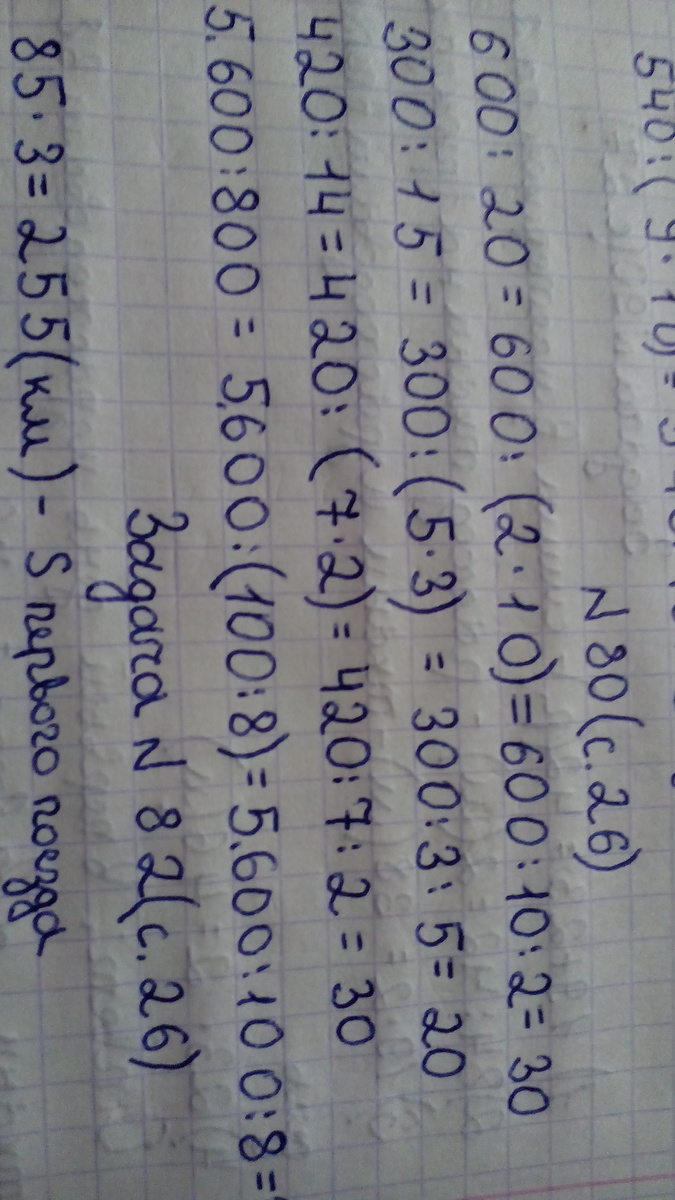 540:(9·10)=540:10
N 80(с.26)
600:20=600:(2·10)=600:10:2=30
300:15=300:(5·3)=300:3:5=20
420:14=420:(7·2)=420:7:2=30
5.600:800=5.600:(100:8)=5.600:100:8=
Задача N 82(с.26)
85·3=255(км)- S первого поезда